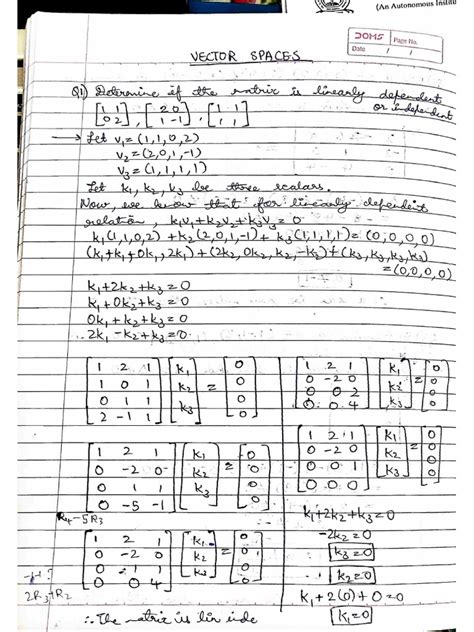 (An Autonomous Institu
DOMS
Page No.
Date / /
VECTOR SPACES
Q1) Determine if the matrix is linearly dependent
or independent
[1 1] , [2 0] , [1 1]
[0 2] [1 -1] [1 1]
→ Let v₁=(1,1,0,2)
v₂=(2,0,1,-1)
v₃=(1,1,1,1)
Let k₁, k₂, k₃ be three scalars.
Now, we know that for linearly dependent
relation, k₁v₁+k₂v₂+k₃v₃=0
k₁(1,1,0,2)+k₂(2,0,1,-1)+k₃(1,1,1,1)=(0,0,0,0)
(k₁+k₁+0k₁,2k₁)+(2k₂,0k₂,k₂,-k₂)+(k₃,k₃,k₃,k₃)
=(0,0,0,0)
k₁+2k₂+k₃=0
k₁+0k₂+k₃=0
0k₁+k₂+k₃=0
2k₁-k₂+k₃=0
[1 2 1] [k₁] [0]
[1 0 1] [k₂] = [0]
[0 1 1] [k₃] [0]
[2 -1 1] [0]
[1 2 1] [k₁] [0]
[0 -2 0] [k₂] = [0]
[0 1 1] [k₃] [0]
[0 -5 -1] [0]
R₄-5R₃
[1 2 1] [k₁] [0]
[0 -2 0] [k₂] = [0]
[0 1 1] [k₃] [0]
[0 0 4] [0]
2R₃+R₂
[1 2 1] [k₁] [0]
[0 -2 0] [k₂] = [0]
[0 0 2] [k₃] [0]
[0 0 4] [0]
[1 2 1] [k₁] [0]
[0 -2 0] [k₂] = [0]
[0 0 1] [k₃] [0]
[0 0 0] [0]
k₁+2k₂+k₃=0
-2k₂=0
k₃=0
k₂=0
k₁+2(0)+0=0
k₁=0
∴ The matrix is lin inde